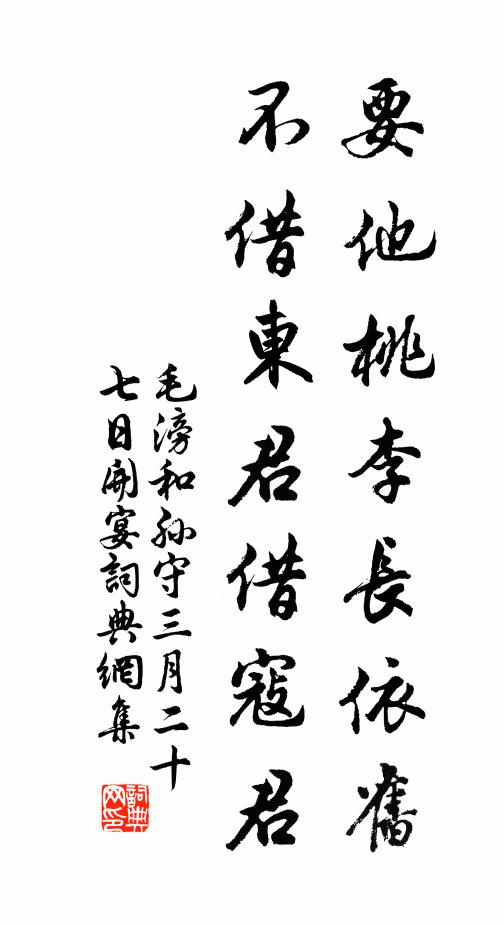 要他桃李長依舊
不借東君借寇君
毛滂和孙守三月二十
七日開宴詞典網集
詞典
网印